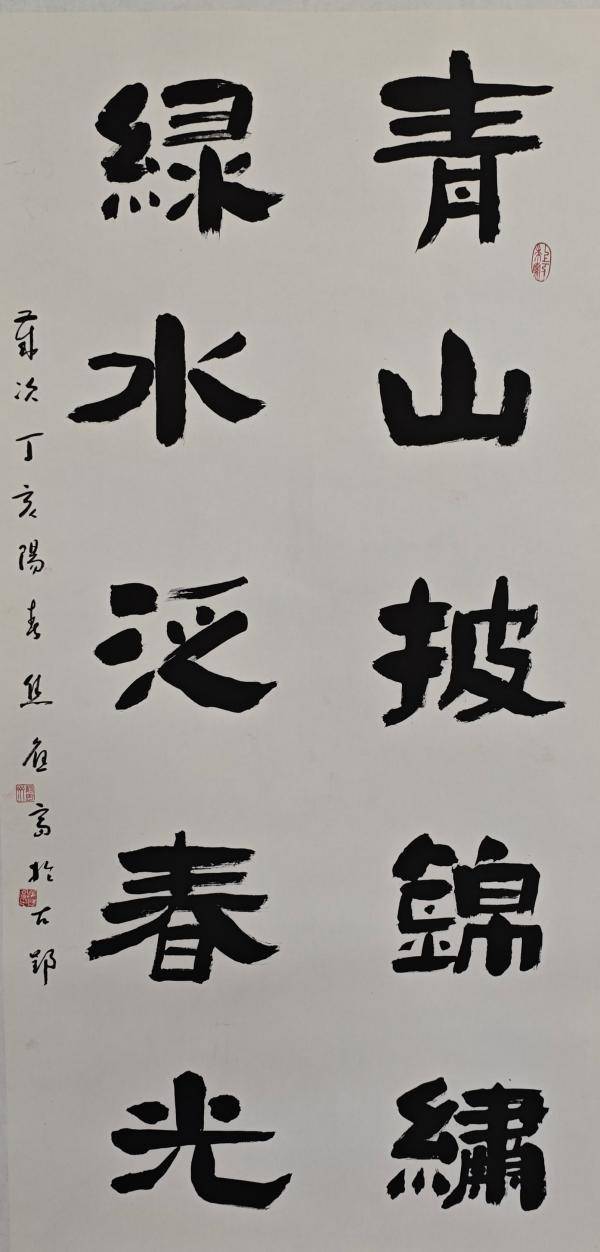 青山披錦繡
綠水泛春光
歲次丁亥陽春熊應高於古鄂